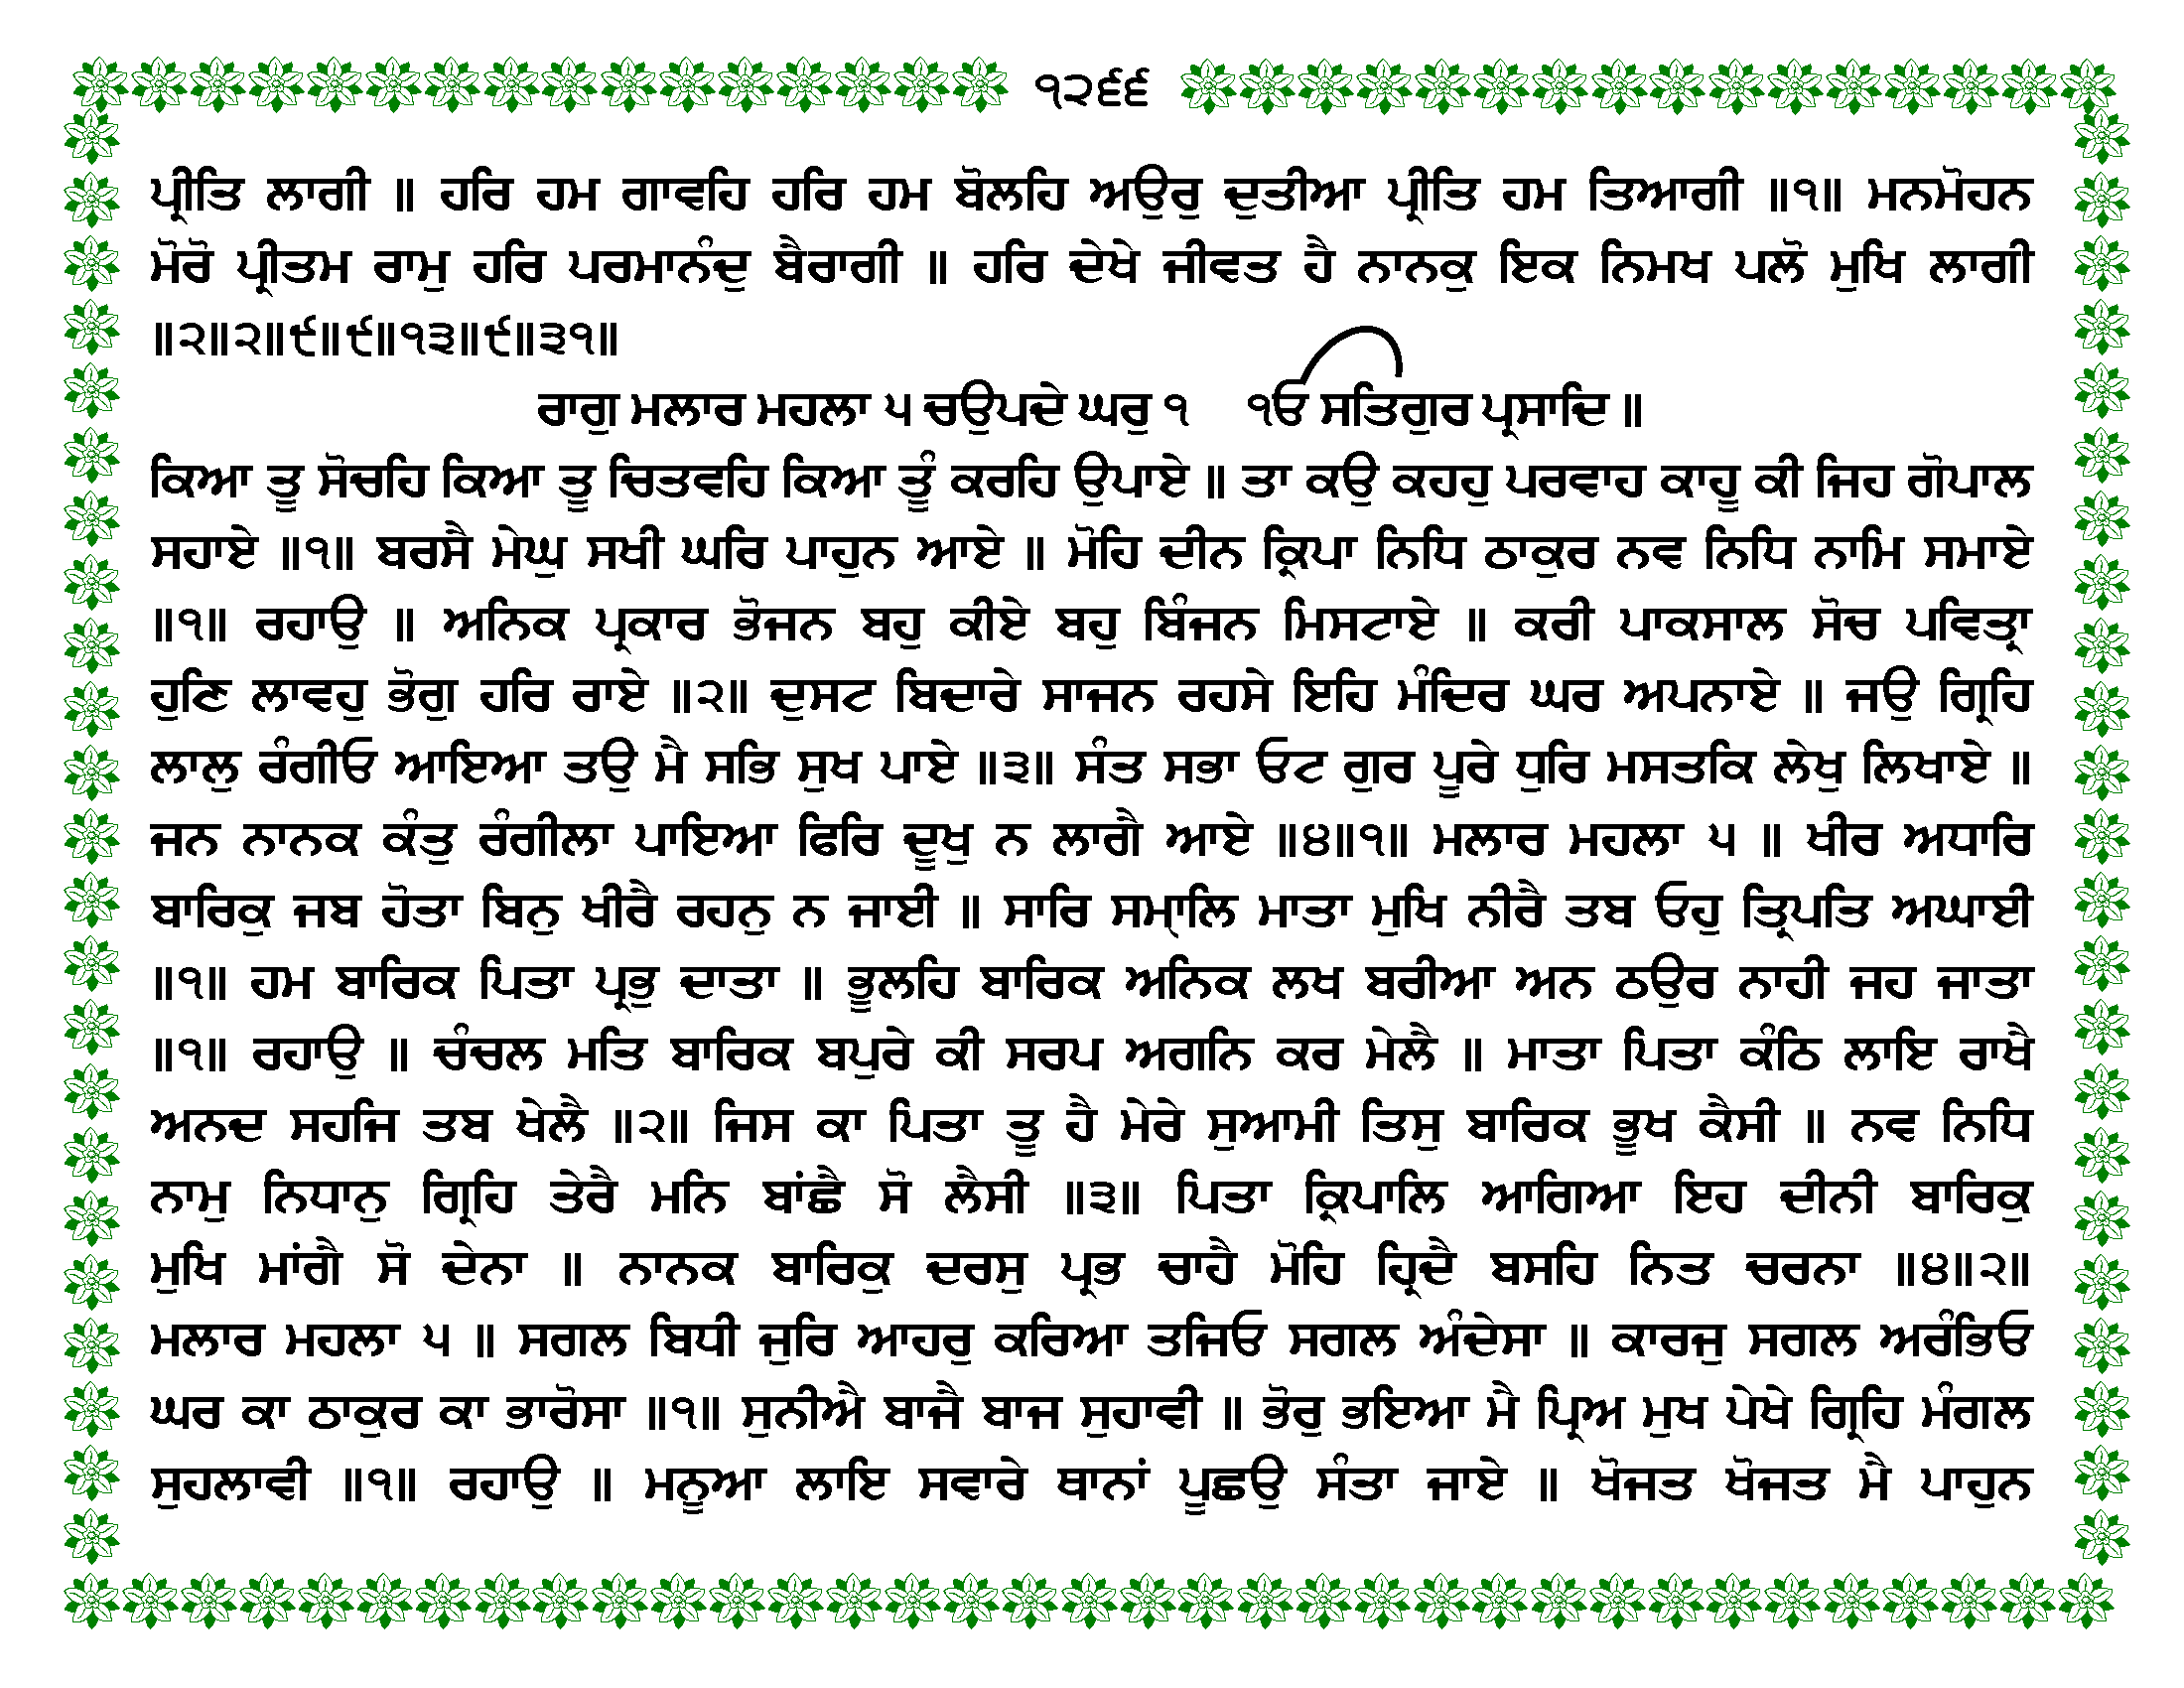 ੧੨੬੬
ਪ੍ਰੀਤਿ ਲਾਗੀ ॥ ਹਰਿ ਹਮ ਗਾਵਹਿ ਹਰਿ ਹਮ ਬੋਲਹਿ ਅਉਰੁ ਦੁਤੀਆ ਪ੍ਰੀਤਿ ਹਮ ਤਿਆਗੀ ॥੧॥ ਮਨਮੋਹਨ
ਮੋਰੋ ਪ੍ਰੀਤਮ ਰਾਮੁ ਹਰਿ ਪਰਮਾਨੰਦੁ ਬੈਰਾਗੀ ॥ ਹਰਿ ਦੇਖੇ ਜੀਵਤ ਹੈ ਨਾਨਕੁ ਇਕ ਨਿਮਖ ਪਲੋ ਮੁਖਿ ਲਾਗੀ
॥੨॥੨॥੯॥੯॥੧੩॥੯॥੩੧॥
ਰਾਗੁ ਮਲਾਰ ਮਹਲਾ ੫ ਚਉਪਦੇ ਘਰੁ ੧ ੴ ਸਤਿਗੁਰ ਪ੍ਰਸਾਦਿ ॥
ਕਿਆ ਤੂ ਸੋਚਹਿ ਕਿਆ ਤੂ ਚਿਤਵਹਿ ਕਿਆ ਤੂੰ ਕਰਹਿ ਉਪਾਏ ॥ ਤਾ ਕਉ ਕਹਹੁ ਪਰਵਾਹ ਕਾਹੂ ਕੀ ਜਿਹ ਗੋਪਾਲ
ਸਹਾਏ ॥੧॥ ਬਰਸੈ ਮੇਘੁ ਸਖੀ ਘਰਿ ਪਾਹੁਨ ਆਏ ॥ ਮੋਹਿ ਦੀਨ ਕ੍ਰਿਪਾ ਨਿਧਿ ਠਾਕੁਰ ਨਵ ਨਿਧਿ ਨਾਮਿ ਸਮਾਏ
॥੧॥ ਰਹਾਉ ॥ ਅਨਿਕ ਪ੍ਰਕਾਰ ਭੋਜਨ ਬਹੁ ਕੀਏ ਬਹੁ ਬਿੰਜਨ ਮਿਸਟਾਏ ॥ ਕਰੀ ਪਾਕਸਾਲ ਸੋਚ ਪਵਿਤ੍ਰਾ
ਹੁਣਿ ਲਾਵਹੁ ਭੋਗੁ ਹਰਿ ਰਾਏ ॥੨॥ ਦੁਸਟ ਬਿਦਾਰੇ ਸਾਜਨ ਰਹਸੇ ਇਹਿ ਮੰਦਿਰ ਘਰ ਅਪਨਾਏ ॥ ਜਉ ਗ੍ਰਿਹਿ
ਲਾਲੁ ਰੰਗੀਓ ਆਇਆ ਤਉ ਮੈ ਸਭਿ ਸੁਖ ਪਾਏ ॥੩॥ ਸੰਤ ਸਭਾ ਓਟ ਗੁਰ ਪੂਰੇ ਧੁਰਿ ਮਸਤਕਿ ਲੇਖੁ ਲਿਖਾਏ ॥
ਜਨ ਨਾਨਕ ਕੰਤੁ ਰੰਗੀਲਾ ਪਾਇਆ ਫਿਰਿ ਦੂਖੁ ਨ ਲਾਗੈ ਆਏ ॥੪॥੧॥ ਮਲਾਰ ਮਹਲਾ ੫ ॥ ਖੀਰ ਅਧਾਰਿ
ਬਾਰਿਕੁ ਜਬ ਹੋਤਾ ਬਿਨੁ ਖੀਰੈ ਰਹਨੁ ਨ ਜਾਈ ॥ ਸਾਰਿ ਸਮ੍ਹਾਲਿ ਮਾਤਾ ਮੁਖਿ ਨੀਰੈ ਤਬ ਓਹੁ ਤ੍ਰਿਪਤਿ ਅਘਾਈ
॥੧॥ ਹਮ ਬਾਰਿਕ ਪਿਤਾ ਪ੍ਰਭੁ ਦਾਤਾ ॥ ਭੂਲਹਿ ਬਾਰਿਕ ਅਨਿਕ ਲਖ ਬਰੀਆ ਅਨ ਠਉਰ ਨਾਹੀ ਜਹ ਜਾਤਾ
॥੧॥ ਰਹਾਉ ॥ ਚੰਚਲ ਮਤਿ ਬਾਰਿਕ ਬਪੁਰੇ ਕੀ ਸਰਪ ਅਗਨਿ ਕਰ ਮੇਲੈ ॥ ਮਾਤਾ ਪਿਤਾ ਕੰਠਿ ਲਾਇ ਰਾਖੈ
ਅਨਦ ਸਹਜਿ ਤਬ ਖੇਲੈ ॥੨॥ ਜਿਸ ਕਾ ਪਿਤਾ ਤੂ ਹੈ ਮੇਰੇ ਸੁਆਮੀ ਤਿਸੁ ਬਾਰਿਕ ਭੂਖ ਕੈਸੀ ॥ ਨਵ ਨਿਧਿ
ਨਾਮੁ ਨਿਧਾਨੁ ਗ੍ਰਿਹਿ ਤੇਰੈ ਮਨਿ ਬਾਂਛੈ ਸੋ ਲੈਸੀ ॥੩॥ ਪਿਤਾ ਕ੍ਰਿਪਾਲਿ ਆਗਿਆ ਇਹ ਦੀਨੀ ਬਾਰਿਕੁ
ਮੁਖਿ ਮਾਂਗੈ ਸੋ ਦੇਨਾ ॥ ਨਾਨਕ ਬਾਰਿਕੁ ਦਰਸੁ ਪ੍ਰਭ ਚਾਹੈ ਮੋਹਿ ਹ੍ਰਿਦੈ ਬਸਹਿ ਨਿਤ ਚਰਨਾ ॥੪॥੨॥
ਮਲਾਰ ਮਹਲਾ ੫ ॥ ਸਗਲ ਬਿਧੀ ਜੁਰਿ ਆਹਰੁ ਕਰਿਆ ਤਜਿਓ ਸਗਲ ਅੰਦੇਸਾ ॥ ਕਾਰਜੁ ਸਗਲ ਅਰੰਭਿਓ
ਘਰ ਕਾ ਠਾਕੁਰ ਕਾ ਭਾਰੋਸਾ ॥੧॥ ਸੁਨੀਐ ਬਾਜੈ ਬਾਜ ਸੁਹਾਵੀ ॥ ਭੋਰੁ ਭਇਆ ਮੈ ਪ੍ਰਿਅ ਮੁਖ ਪੇਖੇ ਗ੍ਰਿਹਿ ਮੰਗਲ
ਸੁਹਲਾਵੀ ॥੧॥ ਰਹਾਉ ॥ ਮਨੂਆ ਲਾਇ ਸਵਾਰੇ ਥਾਨਾਂ ਪੂਛਉ ਸੰਤਾ ਜਾਏ ॥ ਖੋਜਤ ਖੋਜਤ ਮੈ ਪਾਹੁਨ